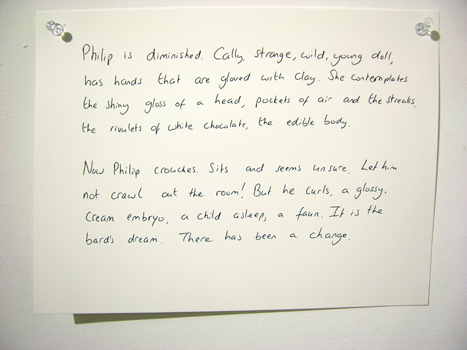 Philip is diminished. Cally, strange, wild, young doll,
has hands that are gloved with clay. She contemplates
the shiny gloss of a head, pockets of air and the streaks,
the rivulets of white chocolate, the edible body.
Now Philip crouches. Sits and seems unsure. Let him
not crawl out the room! But he curls, a glossy.
Cream embryo, a child asleep, a faun. It is the
bard's dream. There has been a change.